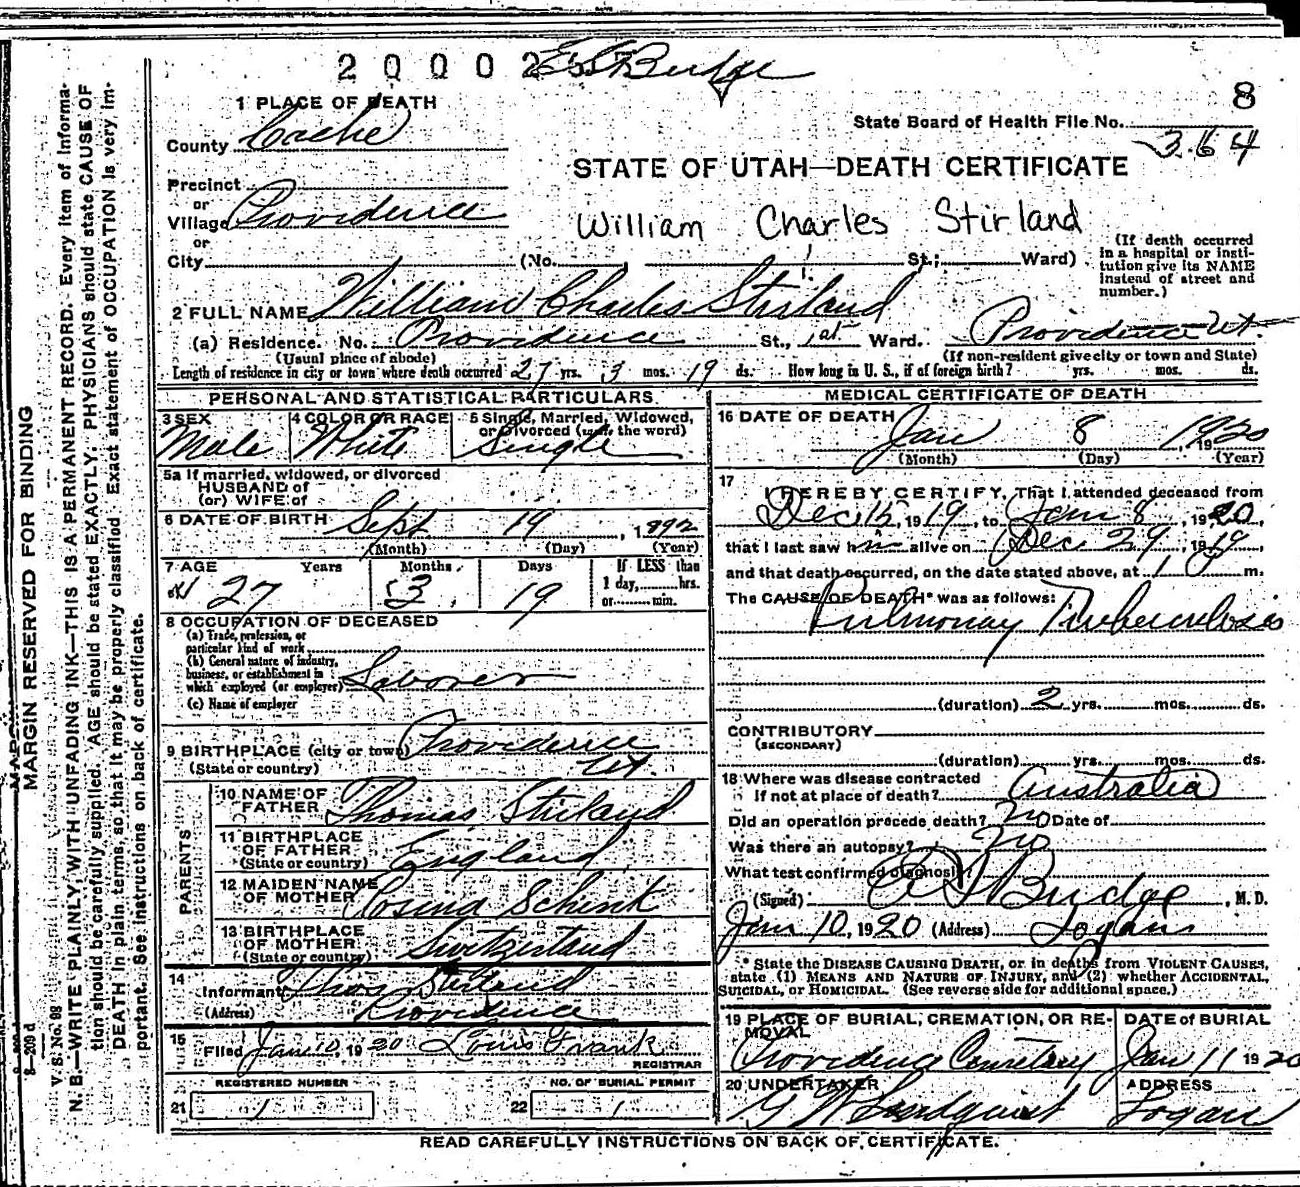 20002
E S Budge
8
1 PLACE OF DEATH
State Board of Health File No.
364
County Cache
STATE OF UTAH—DEATH CERTIFICATE
Precinct
or
Village Providence
William Charles Stirland
or
City (No. , St.; Ward)
(If death occurred in a hospital or institution give its NAME instead of street and number.)
2 FULL NAME William Charles Stirland
(a) Residence. No. Providence St., 1st Ward. Providence Ut
(Usual place of abode) (If non-resident give city or town and State)
Length of residence in city or town where death occurred 27 yrs. 3 mos. 19 ds. How long in U. S., if of foreign birth? yrs. mos. ds.
PERSONAL AND STATISTICAL PARTICULARS
3 SEX 4 COLOR OR RACE 5 Single, Married, Widowed, or Divorced (write the word)
Male White Single
5a If married, widowed, or divorced
HUSBAND of
(or) WIFE of
6 DATE OF BIRTH Sept 19, 1892
(Month) (Day) (Year)
7 AGE Years Months Days If LESS than
1 day, hrs.
or min.
27 3 19
8 OCCUPATION OF DECEASED
(a) Trade, profession, or
particular kind of work
(b) General nature of industry,
business, or establishment in
which employed (or employer) Laborer
(c) Name of employer
9 BIRTHPLACE (city or town) Providence
(State or country) Ut.
PARENTS
10 NAME OF
FATHER Thomas Stirland
11 BIRTHPLACE
OF FATHER
(State or country) England
12 MAIDEN NAME
OF MOTHER Rosina Schenk
13 BIRTHPLACE
OF MOTHER
(State or country) Switzerland
14
Informant Thos Stirland
(Address) Providence
15
Filed Jan 10, 1920 Louis Frank
REGISTRAR
REGISTERED NUMBER NO. OF BURIAL PERMIT
21 1 22 1
MEDICAL CERTIFICATE OF DEATH
16 DATE OF DEATH Jan 8 1920
(Month) (Day) (Year)
17
I HEREBY CERTIFY, That I attended deceased from
Dec 15, 1919, to Jan 8, 1920,
that I last saw him alive on Dec 29, 1919,
and that death occurred, on the date stated above, at 1 m.
The CAUSE OF DEATH* was as follows:
Pulmonay Tuberculosis
(duration) 2 yrs. mos. ds.
CONTRIBUTORY
(SECONDARY)
(duration) yrs. mos. ds.
18 Where was disease contracted
If not at place of death? Australia
Did an operation precede death? No Date of
Was there an autopsy? No
What test confirmed diagnosis?
(Signed) Budge, M. D.
Jan 10, 1920 (Address) Logan
* State the DISEASE CAUSING DEATH, or in deaths from VIOLENT CAUSES,
state (1) MEANS AND NATURE OF INJURY, and (2) whether ACCIDENTAL,
SUICIDAL, or HOMICIDAL. (See reverse side for additional space.)
19 PLACE OF BURIAL, CREMATION, OR REMOVAL DATE of BURIAL
Providence Cemetery Jan 11 1920
20 UNDERTAKER ADDRESS
Lindquist Logan
READ CAREFULLY INSTRUCTIONS ON BACK OF CERTIFICATE.
MARGIN RESERVED FOR BINDING
V. S. No. 98
N. B.—WRITE PLAINLY, WITH UNFADING INK—THIS IS A PERMANENT RECORD. Every item of Informa-
tion should be carefully supplied. AGE should be stated EXACTLY. PHYSICIANS should state CAUSE OF
DEATH in plain terms, so that it may be properly classified. Exact statement of OCCUPATION is very im-
portant. See instructions on back of certificate.